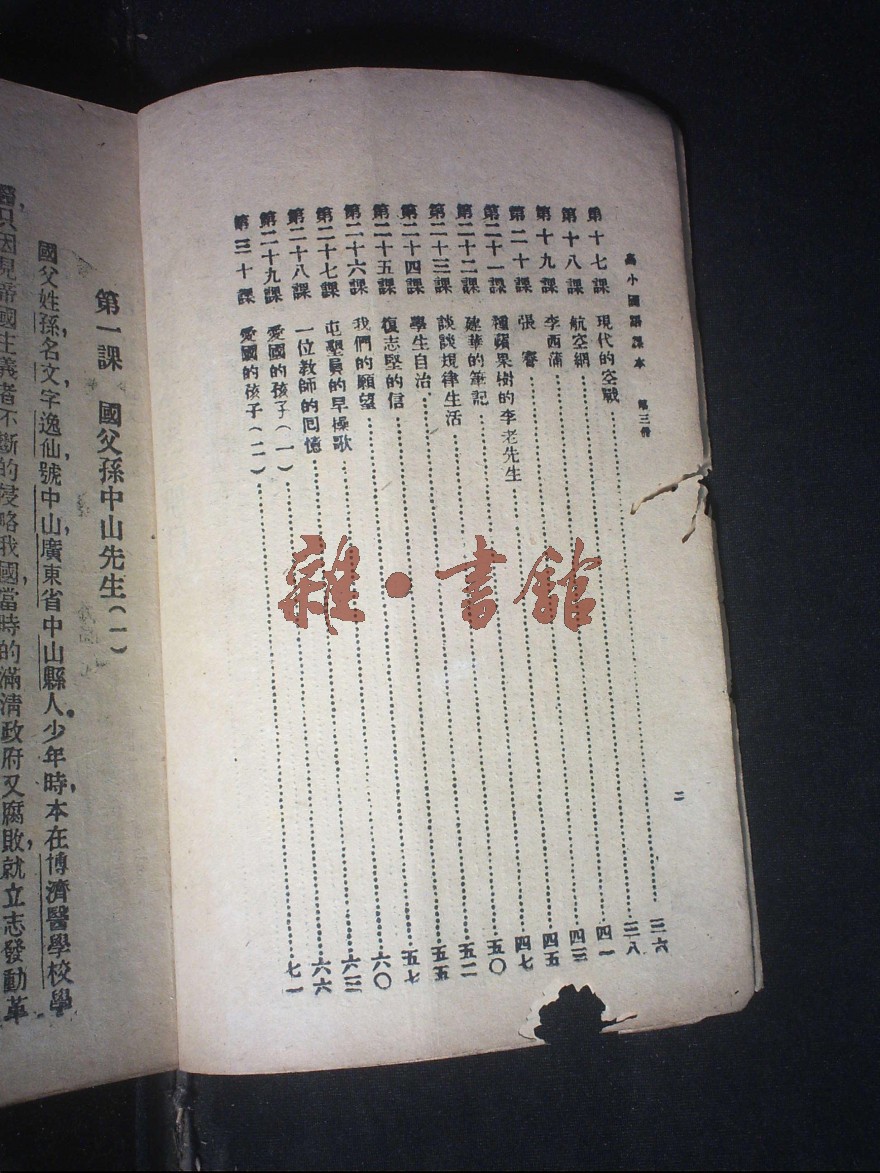 高小國語課本 第三冊
第十七課 現代的空戰 三六
第十八課 航空網 三八
第十九課 李西蒲 四一
第二十課 張謇 四三
第二十一課 種蘋果樹的李老先生 四五
第二十二課 建華的筆記 四七
第二十三課 談談規律生活 五〇
第二十四課 學生自治 五二
第二十五課 復志堅的信 五五
第二十六課 我們的願望 五七
第二十七課 屯墾員的早操歌 六〇
第二十八課 一位教師的回憶 六三
第二十九課 愛國的孩子(一) 六六
第三十課 愛國的孩子(二) 七一
二
雜·書館
第一課 國父孫中山先生(一)
國父姓孫,名文,字逸仙,號中山,廣東省中山縣人。少年時,本在博濟醫學校學
醫,只因見帝國主義者不斷的侵略我國,當時的滿清政府又腐敗,就立志發動革